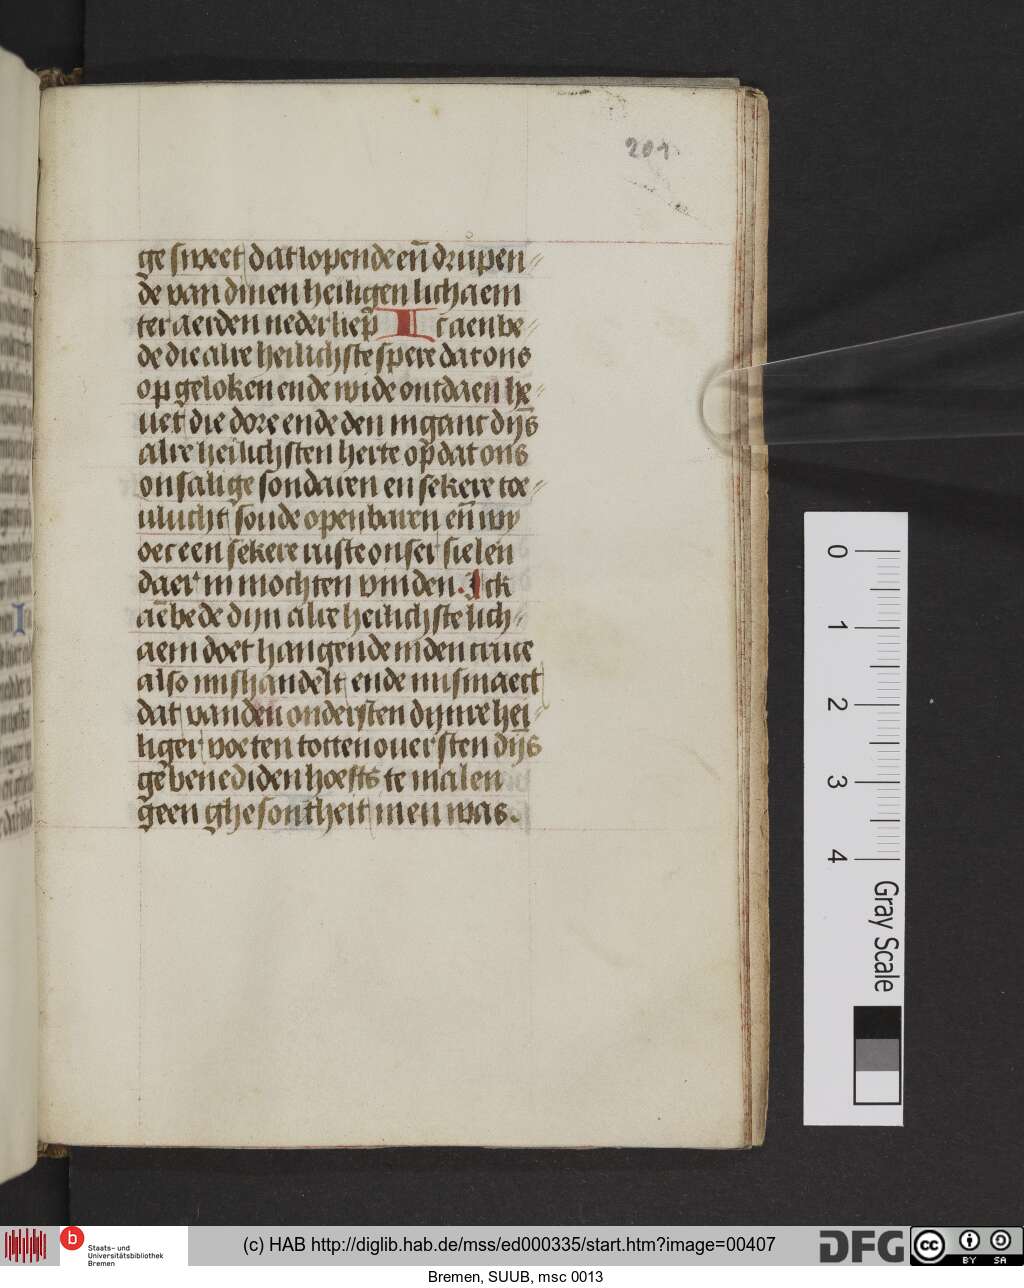 201
ge sweet dat lopende en̄ drupen⸗
de van dinen heiligen lichaem
ter aerden neder liep̄ Ic aenbe⸗
de die alre heilichste spere dat ons
op geloken ende wide ontdaen he⸗
uet die dore ende den ingant dijn̄s
alre heilichsten herte op dat ons
onsalige sondaren en sekere toe⸗
ulucht soude openbaren en̄ wy
oec een sekere ruste onser sielen
daer in mochten vinden. Ick
aēbede dijn alre heilichste lich⸗
aem doet hangende inden cruce
also mishandelt ende mismaect
dat van den ondersten dijnre hei⸗
liger voeten totten ouersten dij̄s
gebenediden hoefts te malen
geen ghesontheit in en was.
0
1
2
3
4
Gray Scale
b
Staats- und
Universitätsbibliothek
Bremen
(c) HAB http://diglib.hab.de/mss/ed000335/start.htm?image=00407
DFG
cc
BY SA
Bremen, SUUB, msc 0013